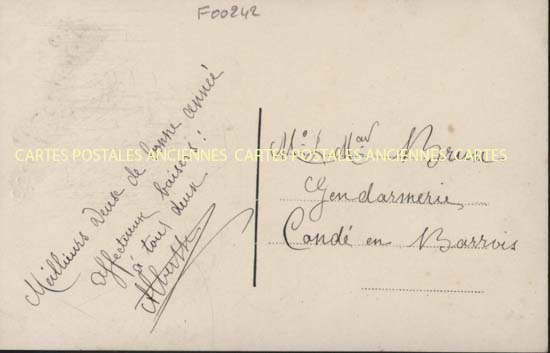 F00242
Meilleurs vœux de bonne année
affectueux baisers !
à tous deux
Alberte
CARTES POSTALES ANCIENNES CARTES POSTALES ANCIENNES CARTES
Brun
Gendarmerie
Condé en Barrois